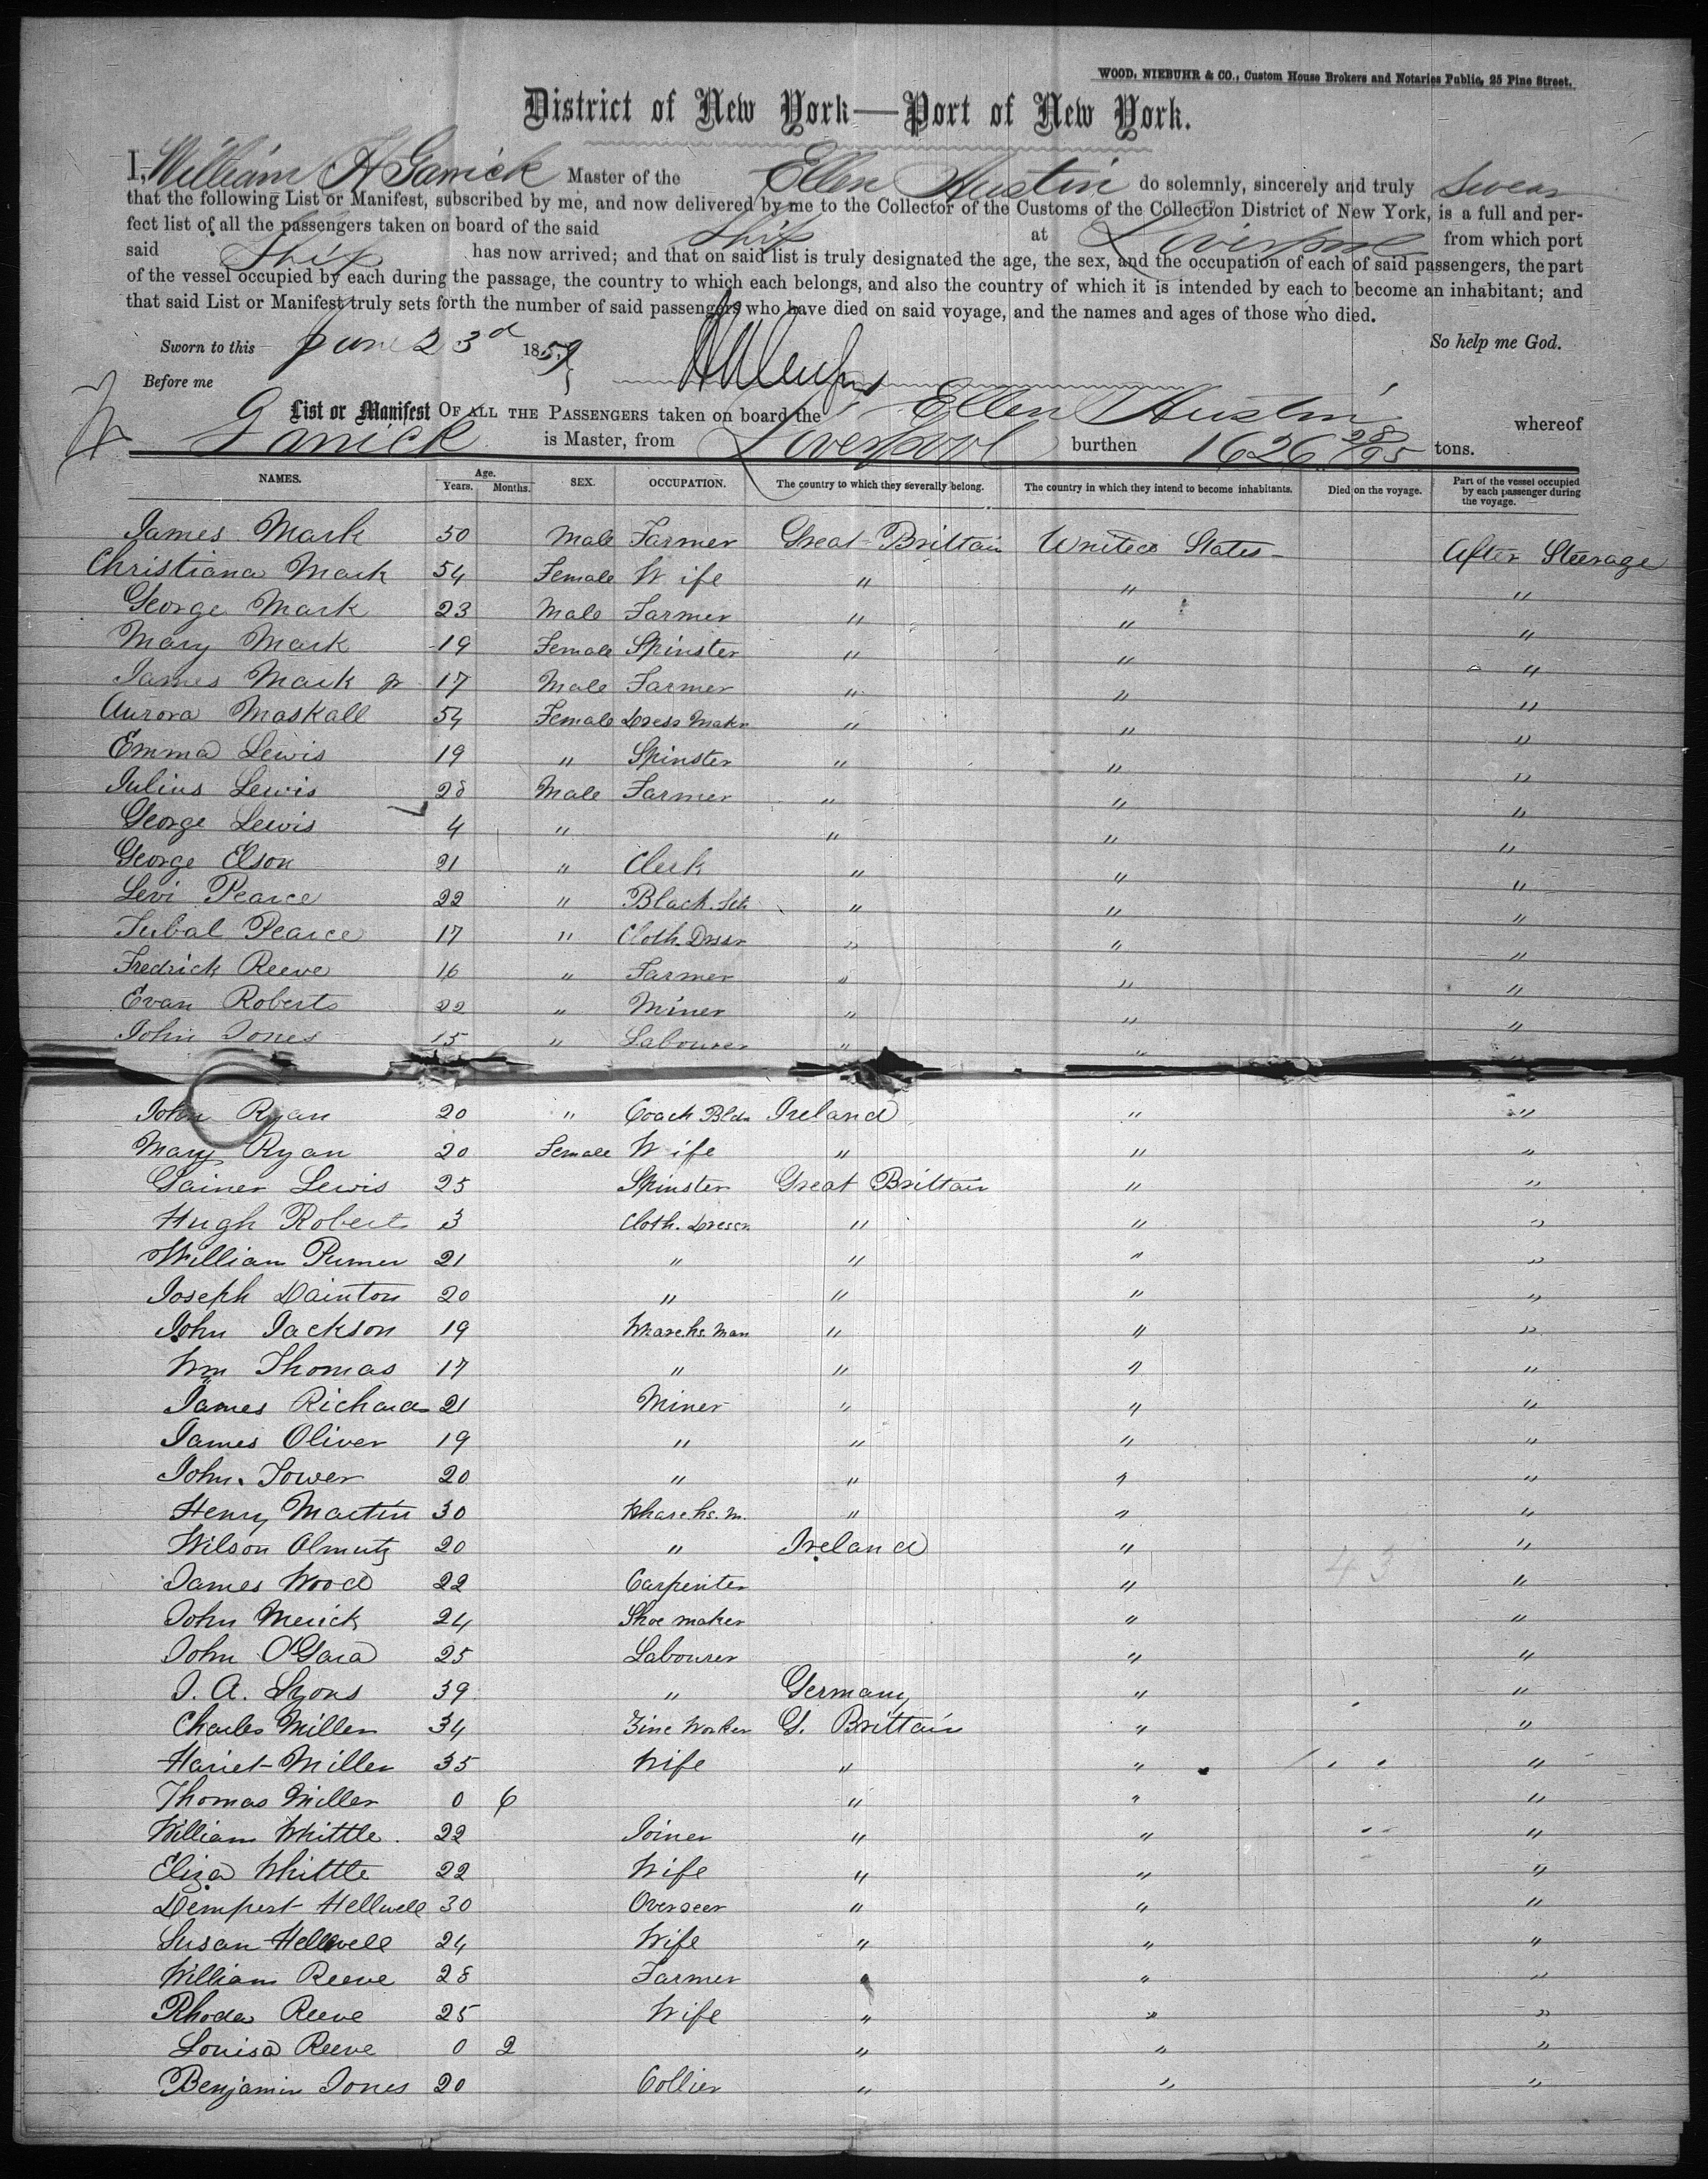 WOOD, NIEBUHR & CO., Custom House Brokers and Notaries Public, 25 Pine Street.
District of New York—Port of New York.
I, William H Garrick Master of the Ellen Austin do solemnly, sincerely and truly swear
that the following List or Manifest, subscribed by me, and now delivered by me to the Collector of the Customs of the Collection District of New York, is a full and per-
fect list of all the passengers taken on board of the said Ship at Liverpool from which port
said Ship has now arrived; and that on said list is truly designated the age, the sex, and the occupation of each of said passengers, the part
of the vessel occupied by each during the passage, the country to which each belongs, and also the country of which it is intended by each to become an inhabitant; and
that said List or Manifest truly sets forth the number of said passengers who have died on said voyage, and the names and ages of those who died.
Sworn to this June 23d 1859 So help me God.
Before me
List or Manifest OF ALL THE PASSENGERS taken on board the Ellen Austin whereof
Garrick is Master, from Liverpool burthen 1626 28/95 tons.
NAMES. Age. Years. Months. SEX. OCCUPATION. The country to which they severally belong. The country in which they intend to become inhabitants. Died on the voyage. Part of the vessel occupied by each passenger during the voyage.
James Mark 50 Male Farmer Great Brittain United States After Steerage
Christiana Mark 54 Female Wife " " "
George Mark 23 Male Farmer " " "
Mary Mark 19 Female Spinster " " "
James Mark jr 17 Male Farmer " " "
Aurora Maskall 54 Female Dress Makr " " "
Emma Lewis 19 " Spinster " " "
Julius Lewis 28 Male Farmer " " "
George Lewis 4 " " " "
George Elson 21 " Clerk " " "
Levi Pearce 22 " Black. Sth " " "
Jubal Pearce 17 " Cloth. Dressr " " "
Fredrick Reeve 16 " Farmer " " "
Evan Roberts 22 " Miner " " "
John Jones 15 " Labourer " " "
John Ryan 20 " Coach Bldr Ireland " "
Mary Ryan 20 Female Wife " " "
Gainer Lewis 25 Spinster Great Brittain " "
Hugh Roberts 3 Cloth. Dressr " " "
William Pumer 21 " " " "
Joseph Dainton 20 " " " "
John Jackson 19 Wharehs. Man " " "
Wm Thomas 17 " " " "
James Richards 21 Miner " " "
James Oliver 19 " " " "
John. Tower 20 " " " "
Henry Martin 30 Wharehs. M. " " "
Wilson Olmutz 20 " Ireland " "
James Wood 22 Carpenter " "
John Merick 24 Shoe maker " "
John O'Gara 25 Labourer " "
J. A. Lyons 39 " Germany " "
Charles Miller 34 Zinc Worker G. Brittain " "
Hariet Miller 35 Wife " " "
Thomas Miller 0 6 " " "
William Whittle. 22 Joiner " " "
Eliza Whittle 22 Wife " " "
Dempest Hellwell 30 Overseer " " "
Susan Hellwell 24 Wife " " "
William Reeve 28 Farmer " " "
Rhoda Reeve 25 Wife " " "
Louisa Reeve 0 2 " " "
Benjamin Jones 20 Collier " " "